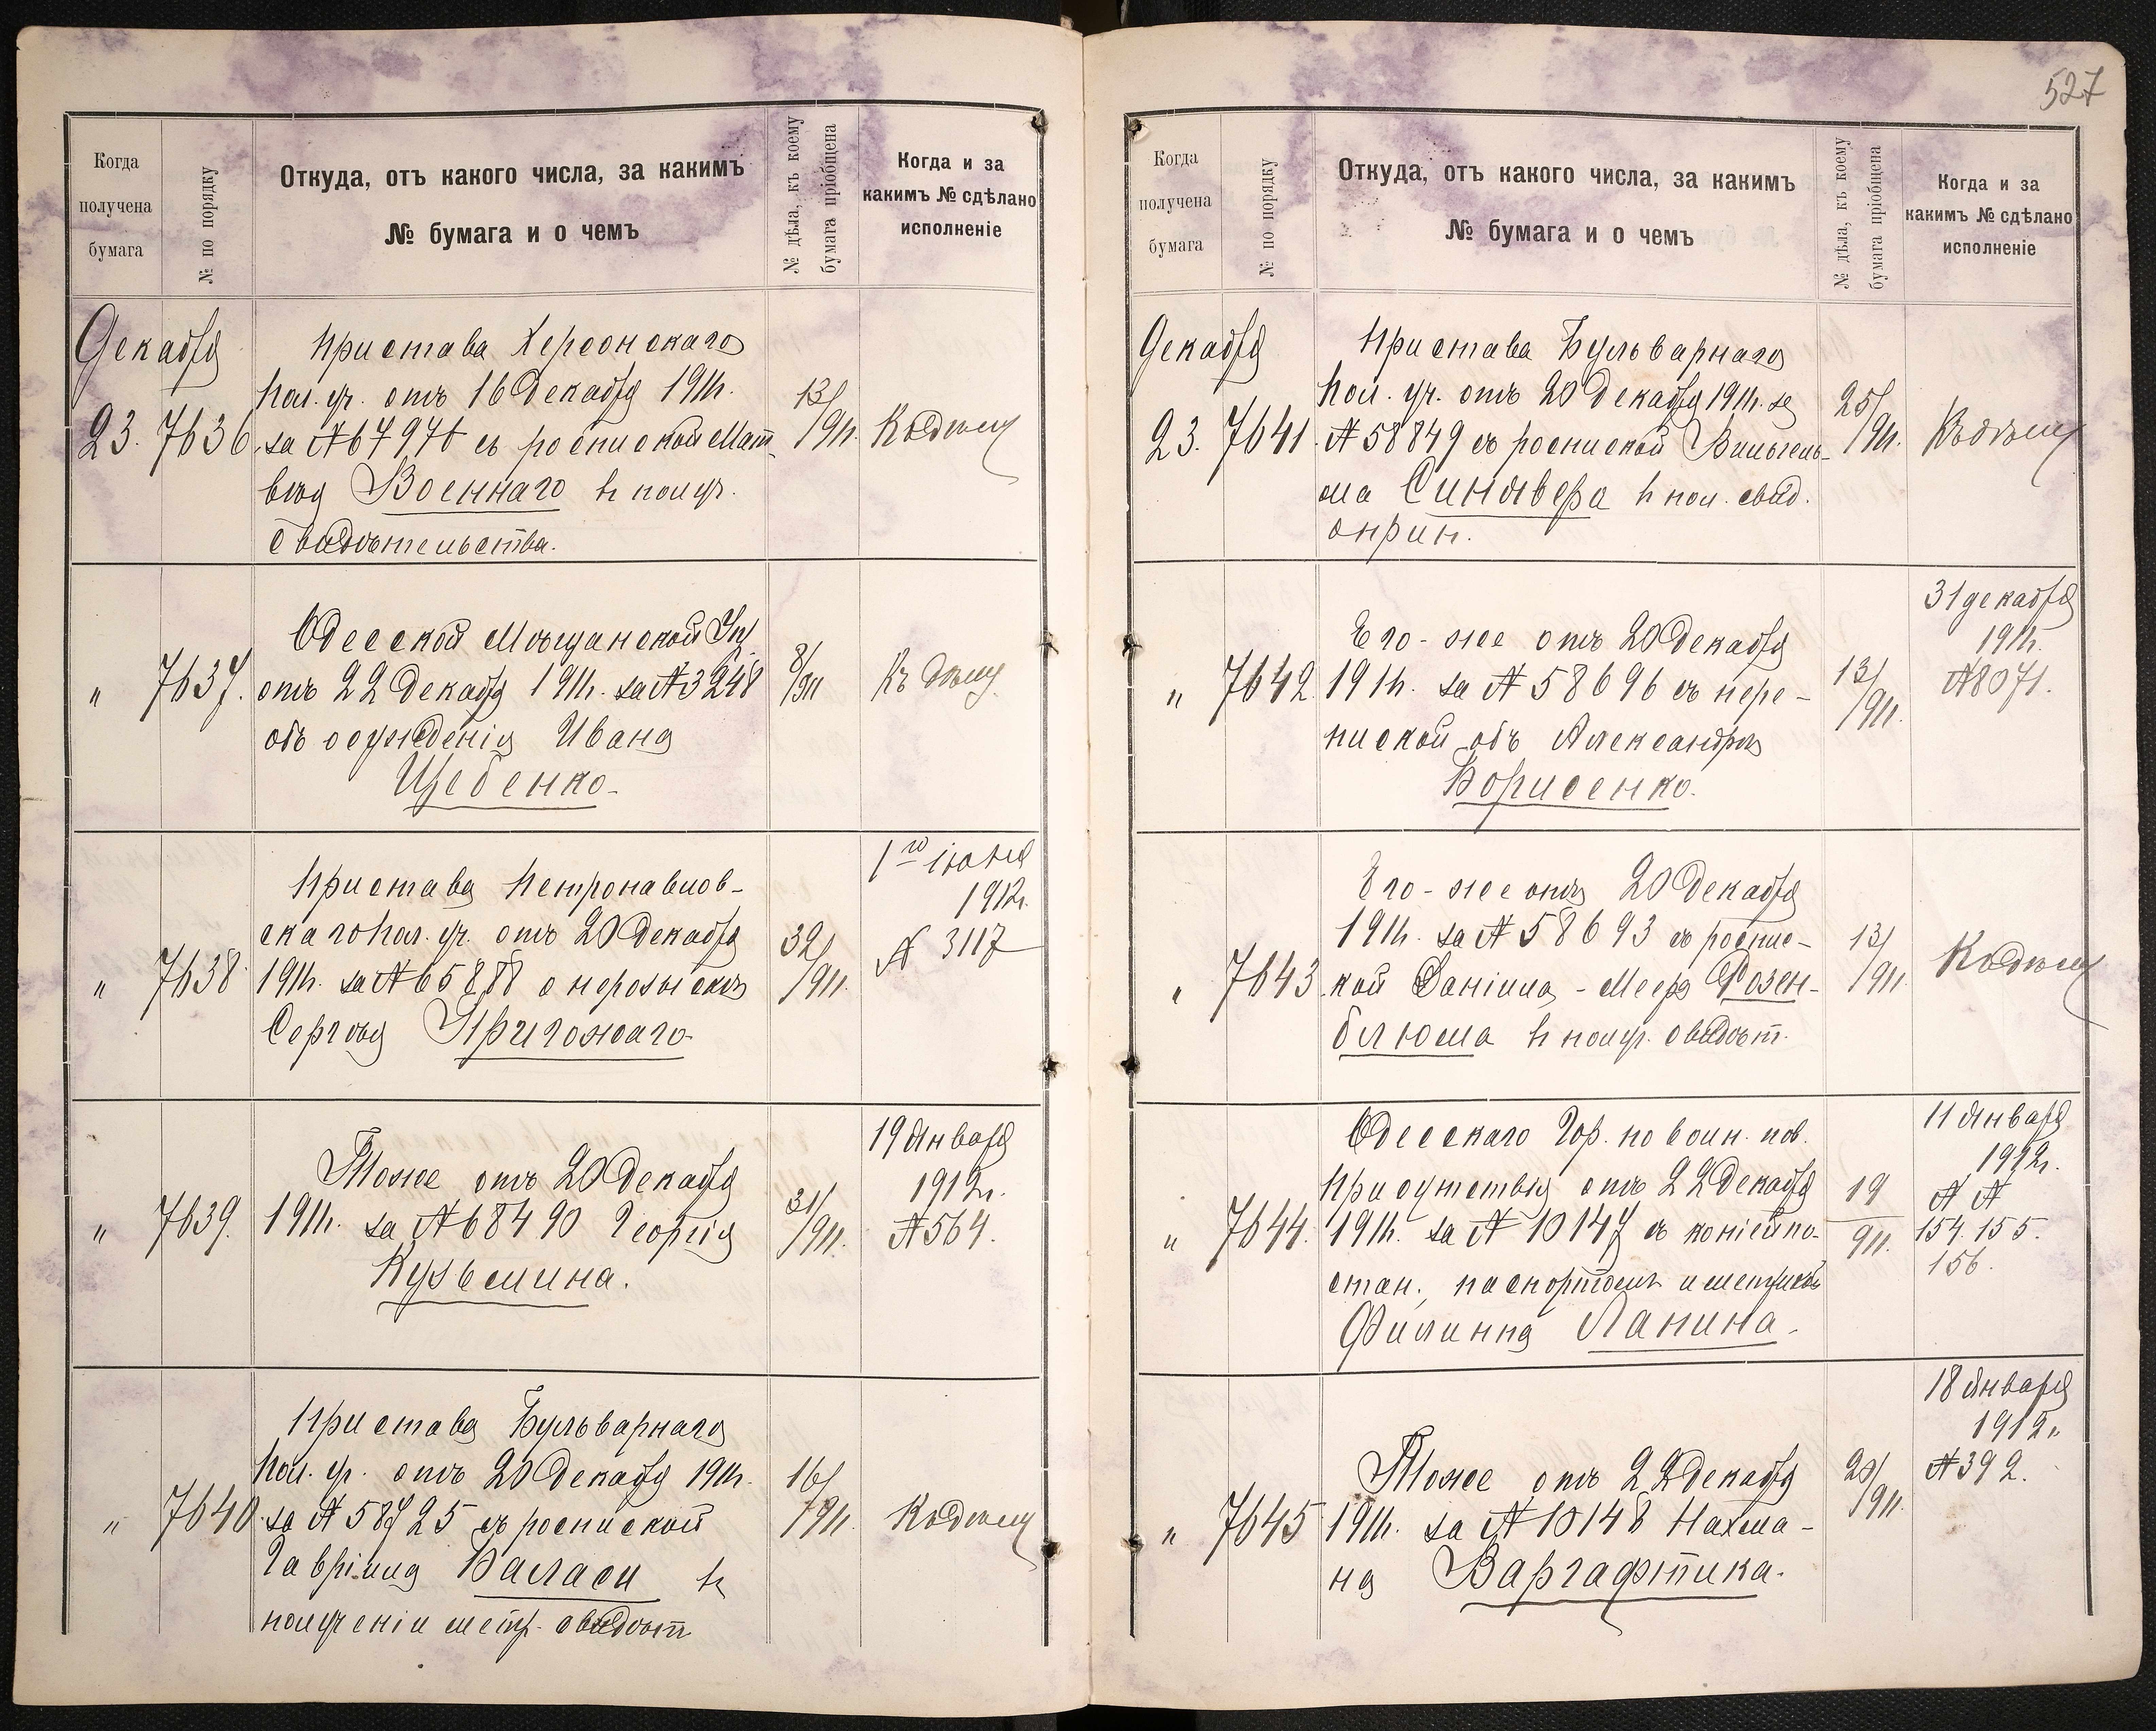 527
Когда
получена
бумага
№ по порядку
Откуда, отъ какого числа, за какимъ
№ бумага и о чемъ
№ дѣла, къ коему
бумага пріобщена
Когда и за
какимъ № сдѣлано
исполненіе
Декабря
23. 7636.
Пристава Херсонскаго
Пол. уч. отъ 16 Декабря 1911г.
за № 67970 съ роспиской Мат-
вѣя Военнаго въ получ.
свидѣтельства.
13/911.
Къ дѣлу
" 7637.
Одесской Мѣщанской Упр.
отъ 22 Декабря 1911г. за № 3248
объ осужденіи Ивана
Щебенко.
8/911
Къ дѣлу
" 7638.
Пристава Петропавлов-
скаго Пол. уч. отъ 20 Декабря
1911г. за № 65888 о нерозыскѣ
Сергѣя Пригожаго.
32/911.
1го іюня
1912г.
№ 3117
" 7639.
Тоже отъ 20 Декабря
1911г. за № 68490 Георгія
Кузьмина.
31/911.
19 Января
1912г.
№ 564.
" 7640.
Пристава Бульварнаго
Пол. уч. отъ 20 Декабря 1911г.
за № 58725 съ роспиской
Гавріила Баласи въ
полученіи метр. свидѣт
16/911.
Къ дѣлу
Когда
получена
бумага
№ по порядку
Откуда, отъ какого числа, за какимъ
№ бумага и о чемъ
№ дѣла, къ коему
бумага пріобщена
Когда и за
какимъ № сдѣлано
исполненіе
Декабря
23. 7641.
Пристава Бульварнаго
Пол. уч. отъ 20 Декабря 1911г. за
№ 58849 съ роспиской Вильгель-
ма Синявера въ пол. свид.
о прип.
25/911.
Къ дѣлу
" 7642.
Его-же отъ 20 Декабря
1911г. за № 58696 съ пере-
пиской объ Александрѣ
Борисенко.
13/911.
31 декабря
1911г.
№ 8071.
" 7643.
Его-же отъ 20 Декабря
1911г. за № 58693 съ роспис-
кой Даніила-Меера Розен-
блюма въ получ. свидѣт.
13/911
Къ дѣлу
" 7644.
Одесскаго Гор. по воин. пов.
Присутствія отъ 22 Декабря
1911г. за № 10147 съ копіей по-
стан., паспортомъ и метрикой
Филиппа Лапина.
19/911.
11 Января
1912г.
№ №
154. 155.
156.
" 7645
Тоже отъ 22 декабря
1911г. за № 10148 Нахма-
на Варгафтика.
20/911.
18 Января
1912г.
№ 392.